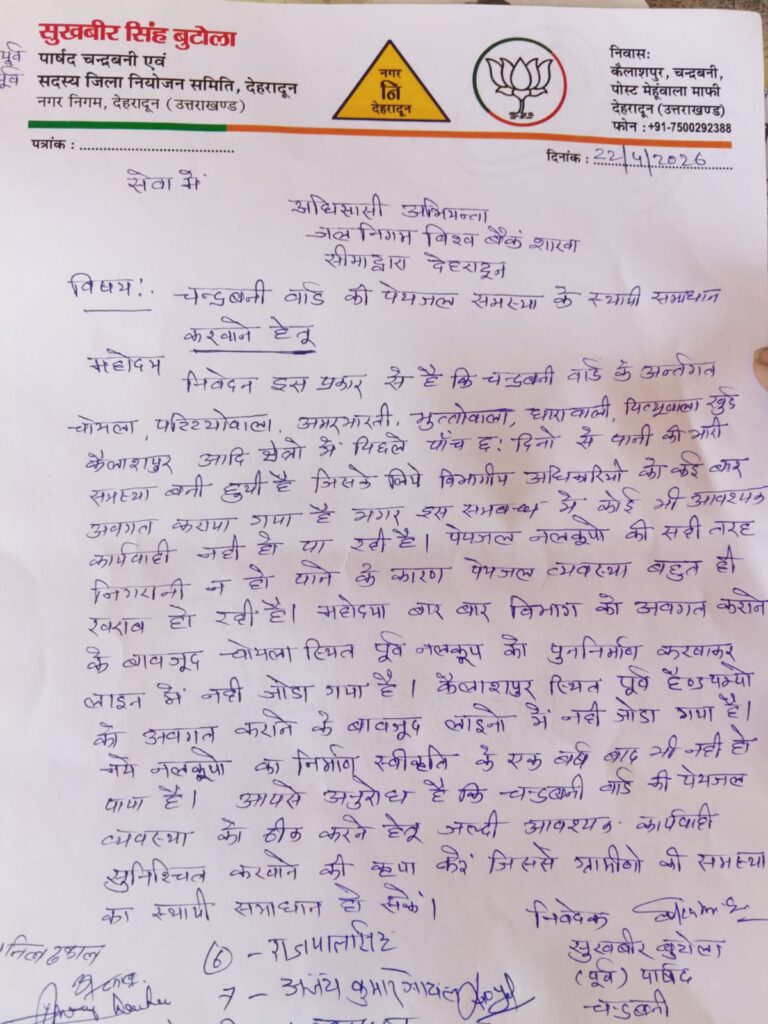 सुखबीर सिंह बुटोला
पूर्व पार्षद चन्द्रबनी एवं
पूर्व सदस्य जिला नियोजन समिति, देहरादून
नगर निगम, देहरादून (उत्तराखण्ड)
नगर
नि
देहरादून
निवासः
कैलाशपुर, चन्द्रबनी,
पोस्ट मेहूंवाला माफी
देहरादून (उत्तराखण्ड)
फोन : +91-7500292388
पत्रांक : ........................................
दिनांक : 22/4/2026
सेवा में
अधिसासी अभियन्ता
जल निगम विश्व बैंक शाखा
सीमाद्वारा देहरादून
विषय:. चन्द्रबनी वार्ड की पेयजल समस्या के स्थायी समाधान
करवाने हेतू
महोदय
निवेदन इस प्रकार से है कि चन्द्रबनी वार्ड के अर्न्तगत
चोयला, पटियोवाला, अमरभारती, भुत्तोवाला, धारावाली, पित्थुवाला खुर्द
कैलाशपुर आदि क्षेत्रो में पिछले पाँच छ: दिनो से पानी की भारी
समस्या बनी हुयी है जिसके लिये विभागीय अधिकारियो को कई बार
अवगत कराया गया है मगर इस समबन्ध में कोई भी आवश्यक
कार्यवाही नही हो पा रही है। पेयजल नलकूपो की सही तरह
निगरानी न हो पाने के कारण पेयजल व्यवस्था बहुत ही
खराब हो रही है। महोदया बार बार विभाग को अवगत कराने
के बावजूद चोयला स्थित पूर्व नलकूप को पुननिर्माण करवाकर
लाइन में नही जोडा गया है। कैलाशपुर स्थित पूर्व हैण्डपम्पो
को अवगत कराने के बावजूद लाइनो में नही जोडा गया है।
नये नलकूपो का निर्माण स्वीकृति के एक वर्ष बाद भी नही हो
पाया है। आपसे अनुरोध है कि चन्द्रबनी वार्ड की पेयजल
व्यवस्था को ठीक करने हेतू जल्दी आवश्यक कार्यवाही
सुनिश्चित करवाने की कृपा करें जिससे ग्रामीणो की समस्या
का स्थायी समाधान हो सकें।
निवेदक
सुखबीर बुटोला
(पूर्व) पार्षद
चन्द्रबनी
6 - राजपालसिंह
7 - अजय कुमार गोयल